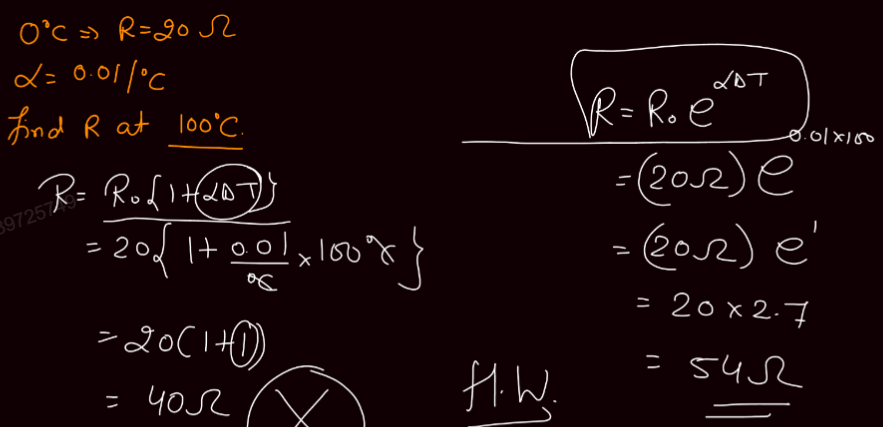 0°C ⇒ R=20 Ω
α= 0.01/°C
find R at 100°C.
R= R₀{1+αΔT}
= 20{ 1+ 0.01/°C × 100°C }
= 20(1+1)
= 40Ω
R= R₀ e^αΔT
= (20Ω) e^0.01×100
= (20Ω) e¹
= 20 × 2.7
= 54Ω
H.W.